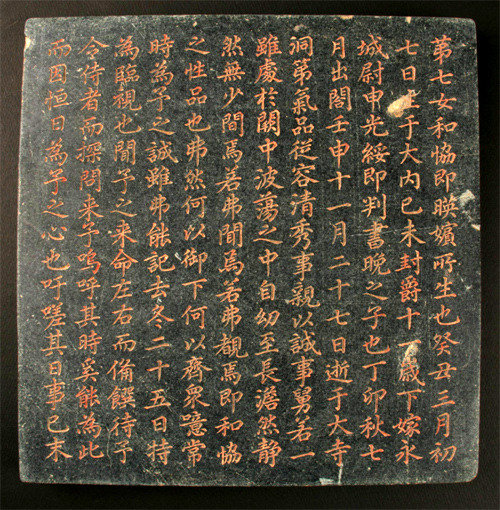 第七女和協即暎嬪所生也癸丑三月初
七日生于大內己未封爵十一歲下嫁永
城尉申光綏即判書晚之子也丁卯秋七
月出閤壬申十一月二十七日逝于大寺
洞第氣品從容清秀事親以誠事舅若一
雖處於闕中波蕩之中自幼至長澹然靜
然無少間焉若弗聞焉若弗覩焉即和協
之性品也弗然何以御下何以齊衆噫常
時為予之誠雖弗能記去冬二十五日特
為臨視也聞予之来命左右而備饌待予
令侍者而探問来予嗚呼其時奚能為此
而因恒日為予之心也吁嗟其日事已末